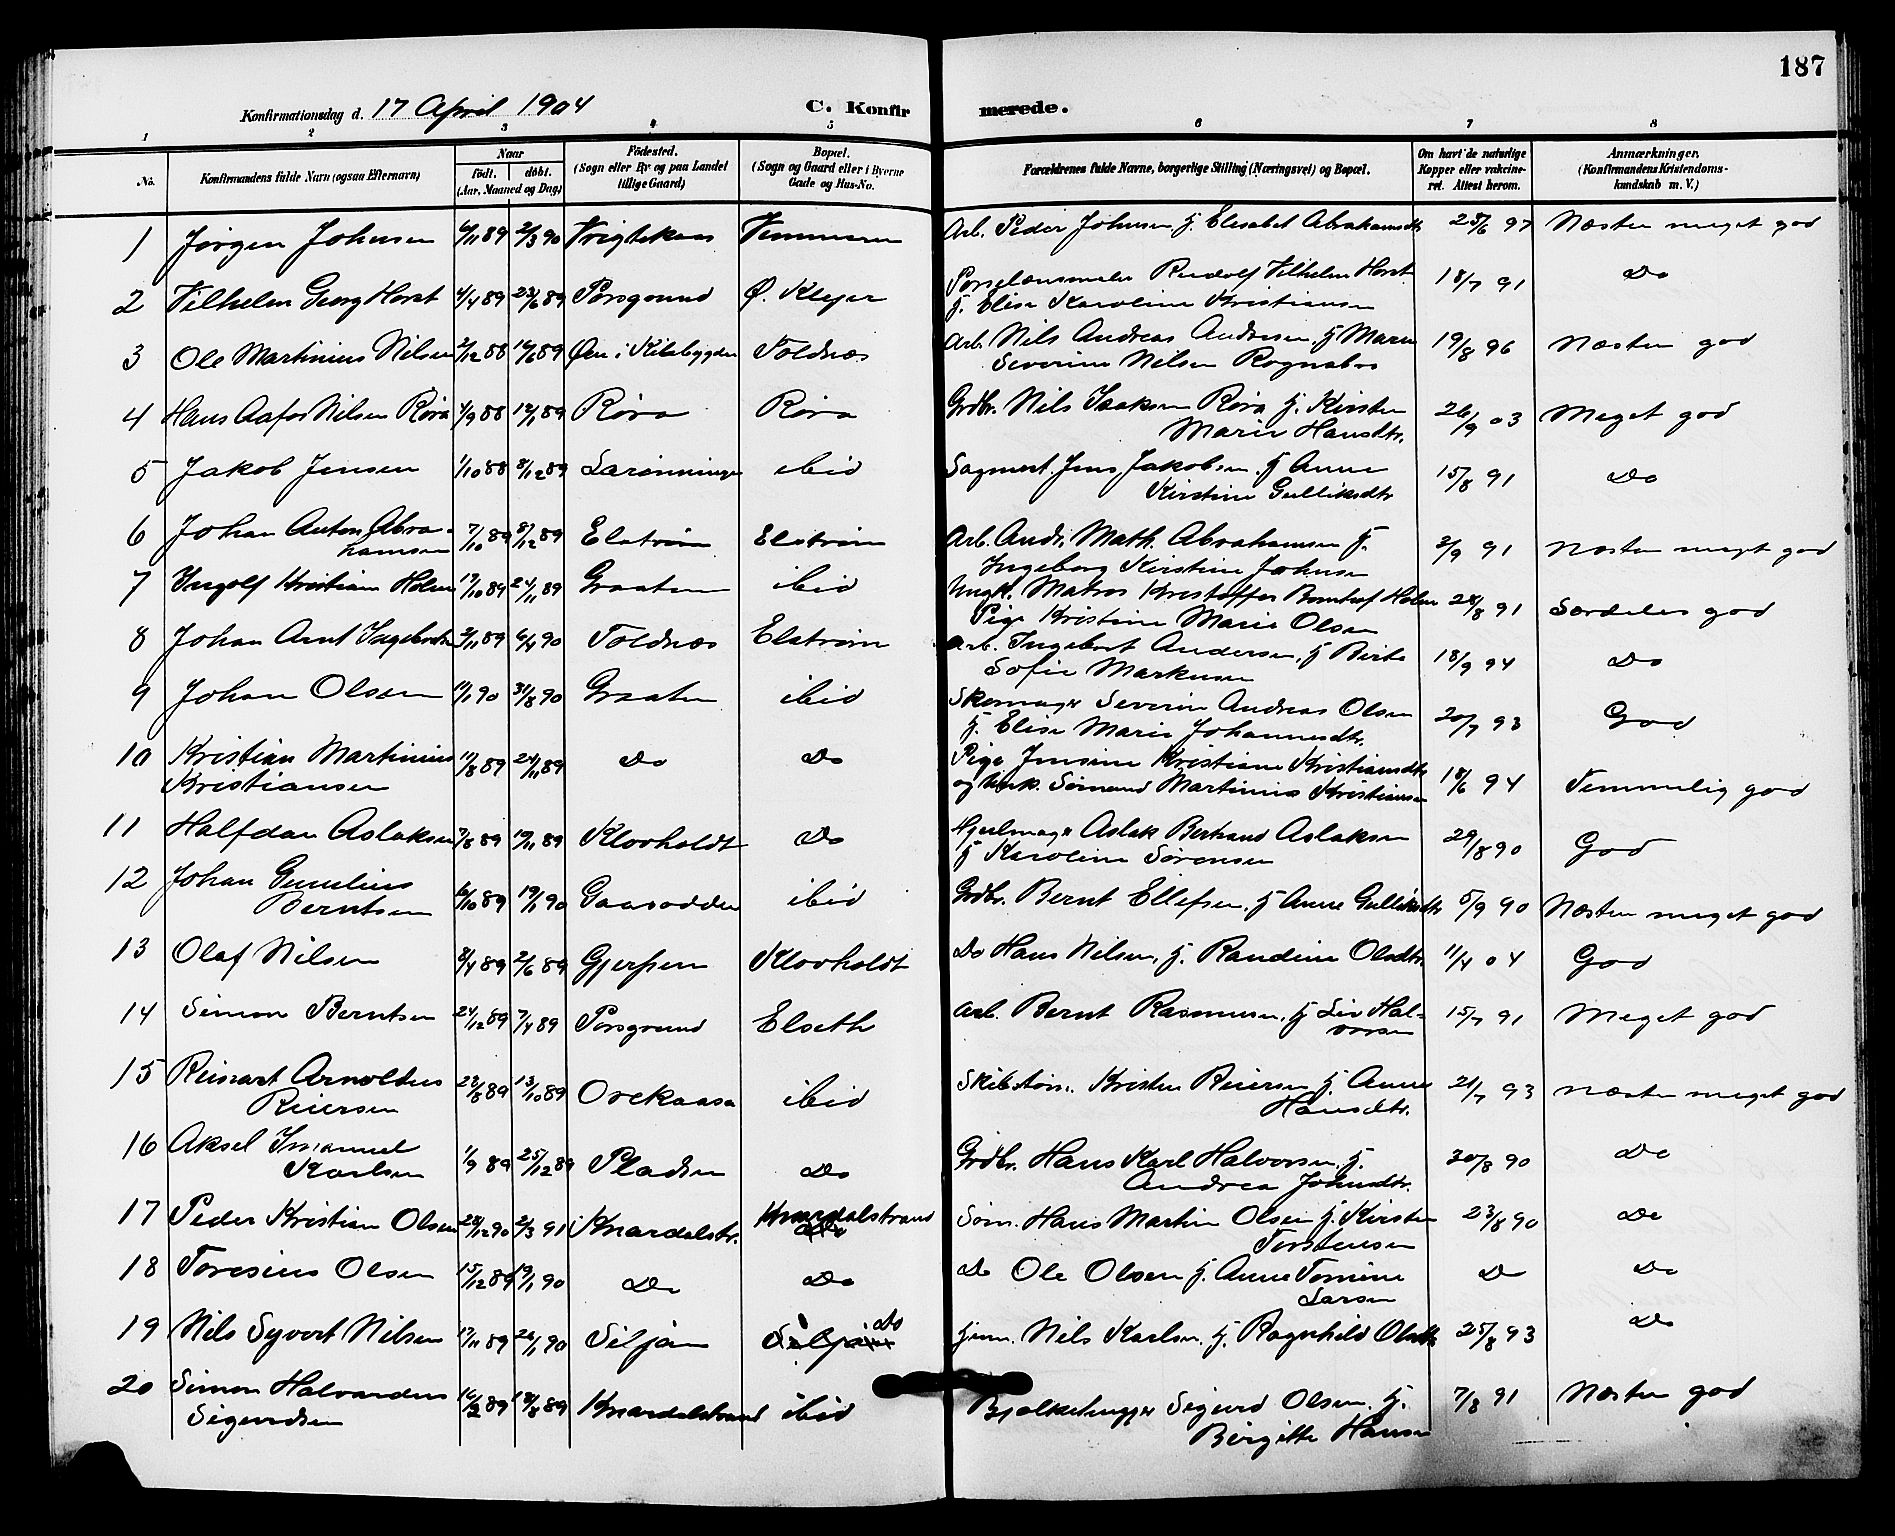 187
Konfirmationsdag d. 17 April 1904 C. Konfirmerede.
1 2 3 4 5 6 7 8
No. Konfirmandens fulde Navn (ogsaa Efternavn) Naar født. døbt. (Aar, Maaned og Dag) Fødested. (Sogn eller By og paa Landet tillige Gaard) Bopæl. (Sogn og Gaard eller i Byerne Gade og Hus-No. Forældrenes fulde Navne, borgerlige Stilling (Næringsvei) og Bopæl. Om havt de naturlige Kopper eller vaccineret. Attest herom. Anmærkninger. (Konfirmandens Kristendomskundskab m. V.)
1 Jørgen Johnsen 6/11 89 2/3 90 Arb. Peder Johnsen h. Elisabet Abrahamsdtr 25/6 97 Næsten meget god
2 Vilhelm Georg Horst 4/4 89 23/6 89 Porsgrund Ø. Klejer Porselænsmaler Rudolf Vilhelm Horst
h. Elise Karoline Kristiansen 18/7 91 Do
3 Ole Martinius Nilsen 2/12 88 16/6 89 Øen i Kilebygden Toldnæs Arb. Nils Andreas Andersen h Maren
Severine Nilsen 19/8 96 Næsten god
4 Hans Nilsen Røra 4/9 88 Røra Røra Grdbr. Nils Isaksen Røra h. Kirsten
Marie Hansdtr. 26/9 03 Meget god
5 Jakob Jensen 1/10 88 8/12 89 ibid Sagmest. Jens Jakobsen h Anne
Kirstine Gulliksdtr 15/8 91 Do
6 Johan Anton Abra-
hamsen 7/10 89 8/12 89 Elstrøm Elstrøm Arb. Andr. Math. Abrahamsen h.
Ingeborg Kirstine Johnsen 3/9 91 Næsten meget god
7 Ingolf Kristian Holm 17/10 89 24/11 89 Graaten ibid Ungk. Matros Kristoffer Holm
Pige Kristine Marie Olsen 28/8 91 Særdeles god
8 Johan Arnt Ingebretsen 3/11 89 6/4 90 Toldnæs Elstrøm Arb. Ingebret Andersen h Berte
Sofie Markusen 18/9 94 Do
9 Johan Olsen 11/1 90 31/8 90 Graaten ibid Skomager Severin Andreas Olsen
h. Elise Marie Johannesdtr. 20/7 93 God
10 Kristian Martinius
Kristiansen 11/8 89 24/11 89 Do Do Pige Jensine Kristiane Kristiansdtr
og Unk. Sømand Martinius Kristiansen 18/6 94 Temmelig god
11 Halfdan Aslaksen 7/8 89 10/11 89 Klovholdt Do Hjulmager Aslak Bertrand Aslaksen
h Karoline Sørensen 29/8 90 God
12 Johan Gunelius
Berntsen 6/10 89 19/1 90 Gaasodden ibid Grdbr. Bernt Ellefsen, h Anne Gulliksdtr 5/9 90 Næsten meget god
13 Olaf Nilsen 8/4 89 2/6 89 Gjerpen Klovholdt Do Hans Nilsen, h. Randine Olsdtr. 11/4 04 God
14 Simon Berntsen 24/12 89 7/4 89 Porsgrund Elseth Arb. Bernt Rasmussen, h Liv Hal-
vorsen 15/7 91 Meget god
15 Arnoldus
Reiersen 23/8 89 13/10 89 Orekaasa ibid Kristen Reiersen h Anne
Hansdtr. 21/7 93 Næsten meget god
16 Aksel Imanuel
Karlsen 1/9 89 25/12 89 Pladsen Do Grdbr. Hans Karl Halvorsen h.
Andrea Johnsdtr. 30/8 90 Do
17 Peder Kristian Olsen 28/12 90 2/3 91 Knardalstr. Knardalstrand
Do Søm. Hans Martin Olsen h. Kirsten
Torstensen 23/8 90 Do
18 Toresius Olsen 15/12 89 19/1 90 Do Do Do Ole Olsen h. Anne Tomine
Larsen Do Do
19 Nils Syvert Nilsen 17/11 89 26/1 90 Siljan Siljan Do Nils Karlsen h. Ragnhild Olsdtr 25/8 93 Do
20 Simon Halvardus
Sigurdsen 16/2 89 18/8 89 Knardalstrand ibid Bjelkehugger Sigurd Olsen h.
Birgitte Hansen 7/8 91 Næsten god